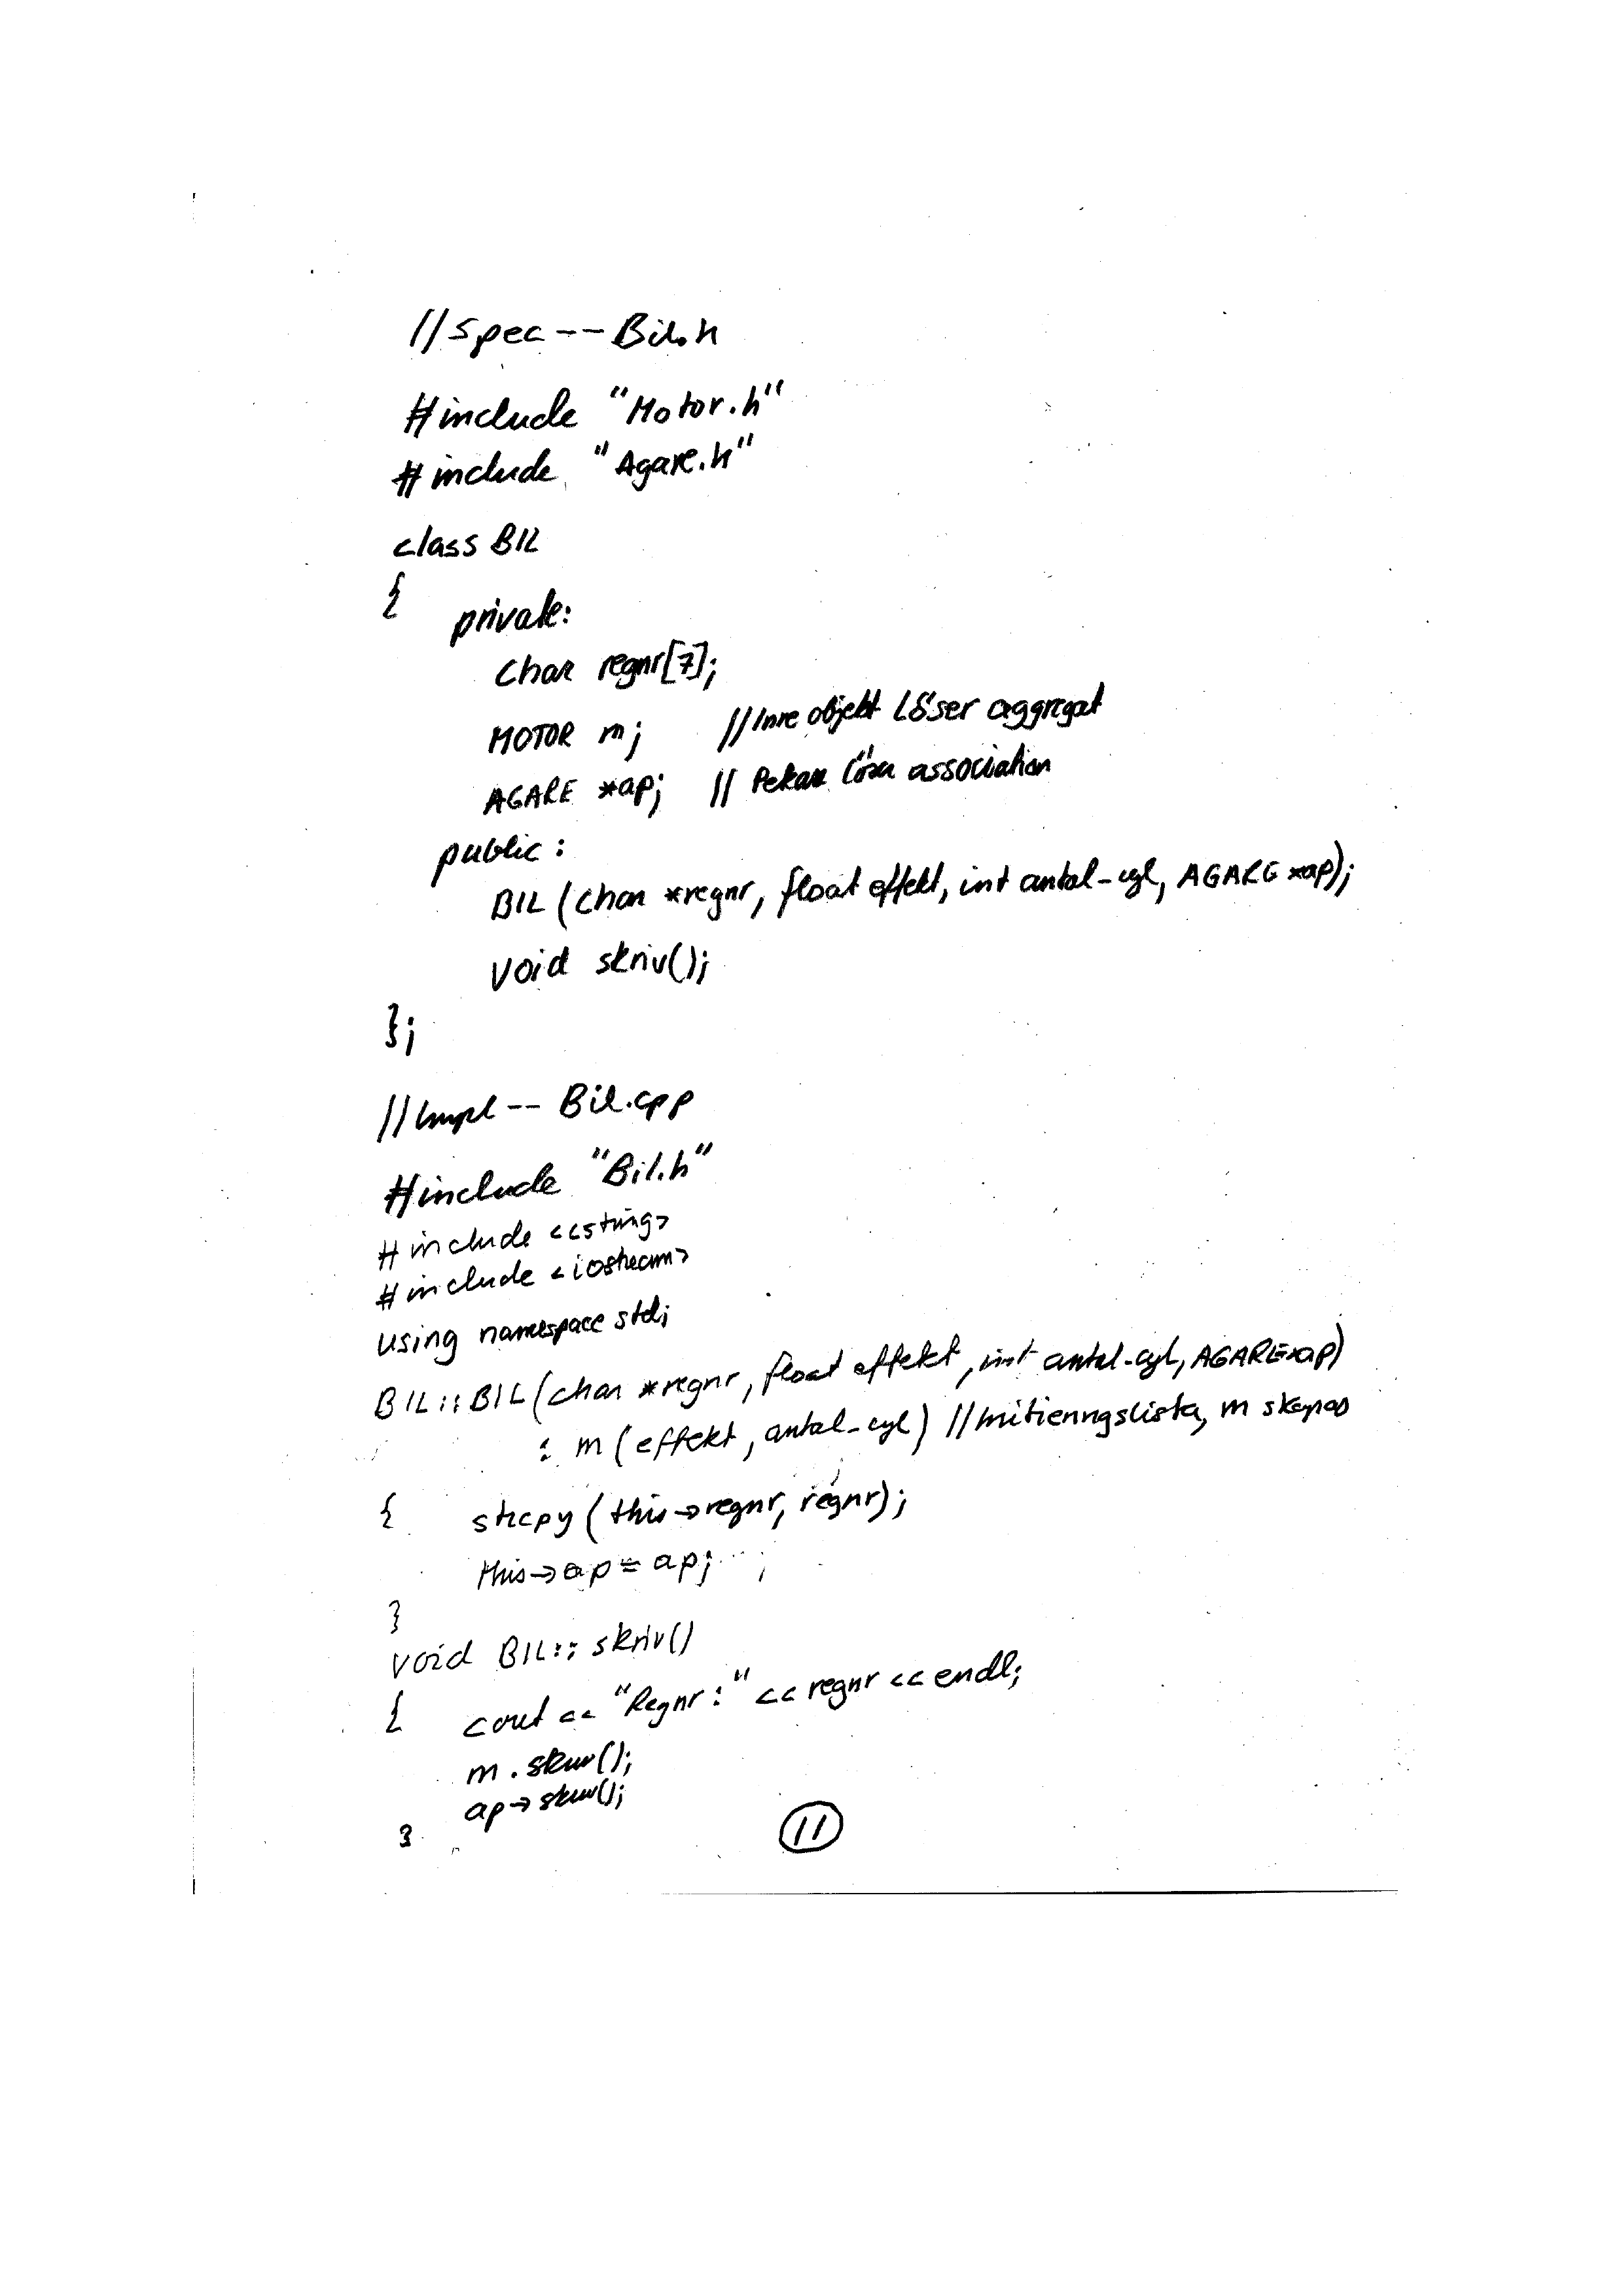 //Spec -- Bil.h
#include "Motor.h"
#include "Agare.h"
class BIL
{ private:
char regnr[7];
MOTOR m; //Inre objekt Löser aggregat
AGARE *ap; // Pekare löser association
public:
BIL (char *regnr, float effekt, int antal-cyl, AGARE *ap);
void skriv();
};
//Impl -- Bil.cpp
#include "Bil.h"
#include <cstring>
#include <iostream>
using namespace std;
BIL::BIL(char *regnr, float effekt, int antal-cyl, AGARE*ap)
: m (effekt, antal-cyl) //Initieringslista, m skapas
{ strcpy (this->regnr, regnr);
this->ap = ap;
}
void BIL::skriv()
{ cout << "Regnr:" << regnr << endl;
m.skriv();
ap->skriv();
}
11